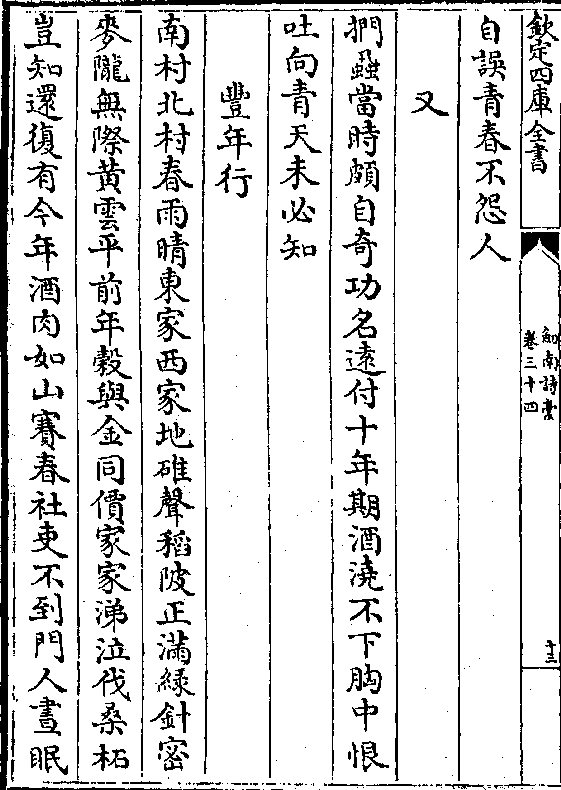 欽定四庫全書
劍南詩藁
卷三十四
十三
自誤青春不怨人
又
捫蝨當時頗自奇功名遠付十年期酒澆不下胸中恨
吐向青天未必知
豐年行
南村北村春雨晴東家西家地碓聲稻陂正滿綠針密
麥隴無際黄雲平前年穀與金同價家家涕泣伐桑柘
豈知還復有今年酒肉如山賽春社吏不到門人晝眠